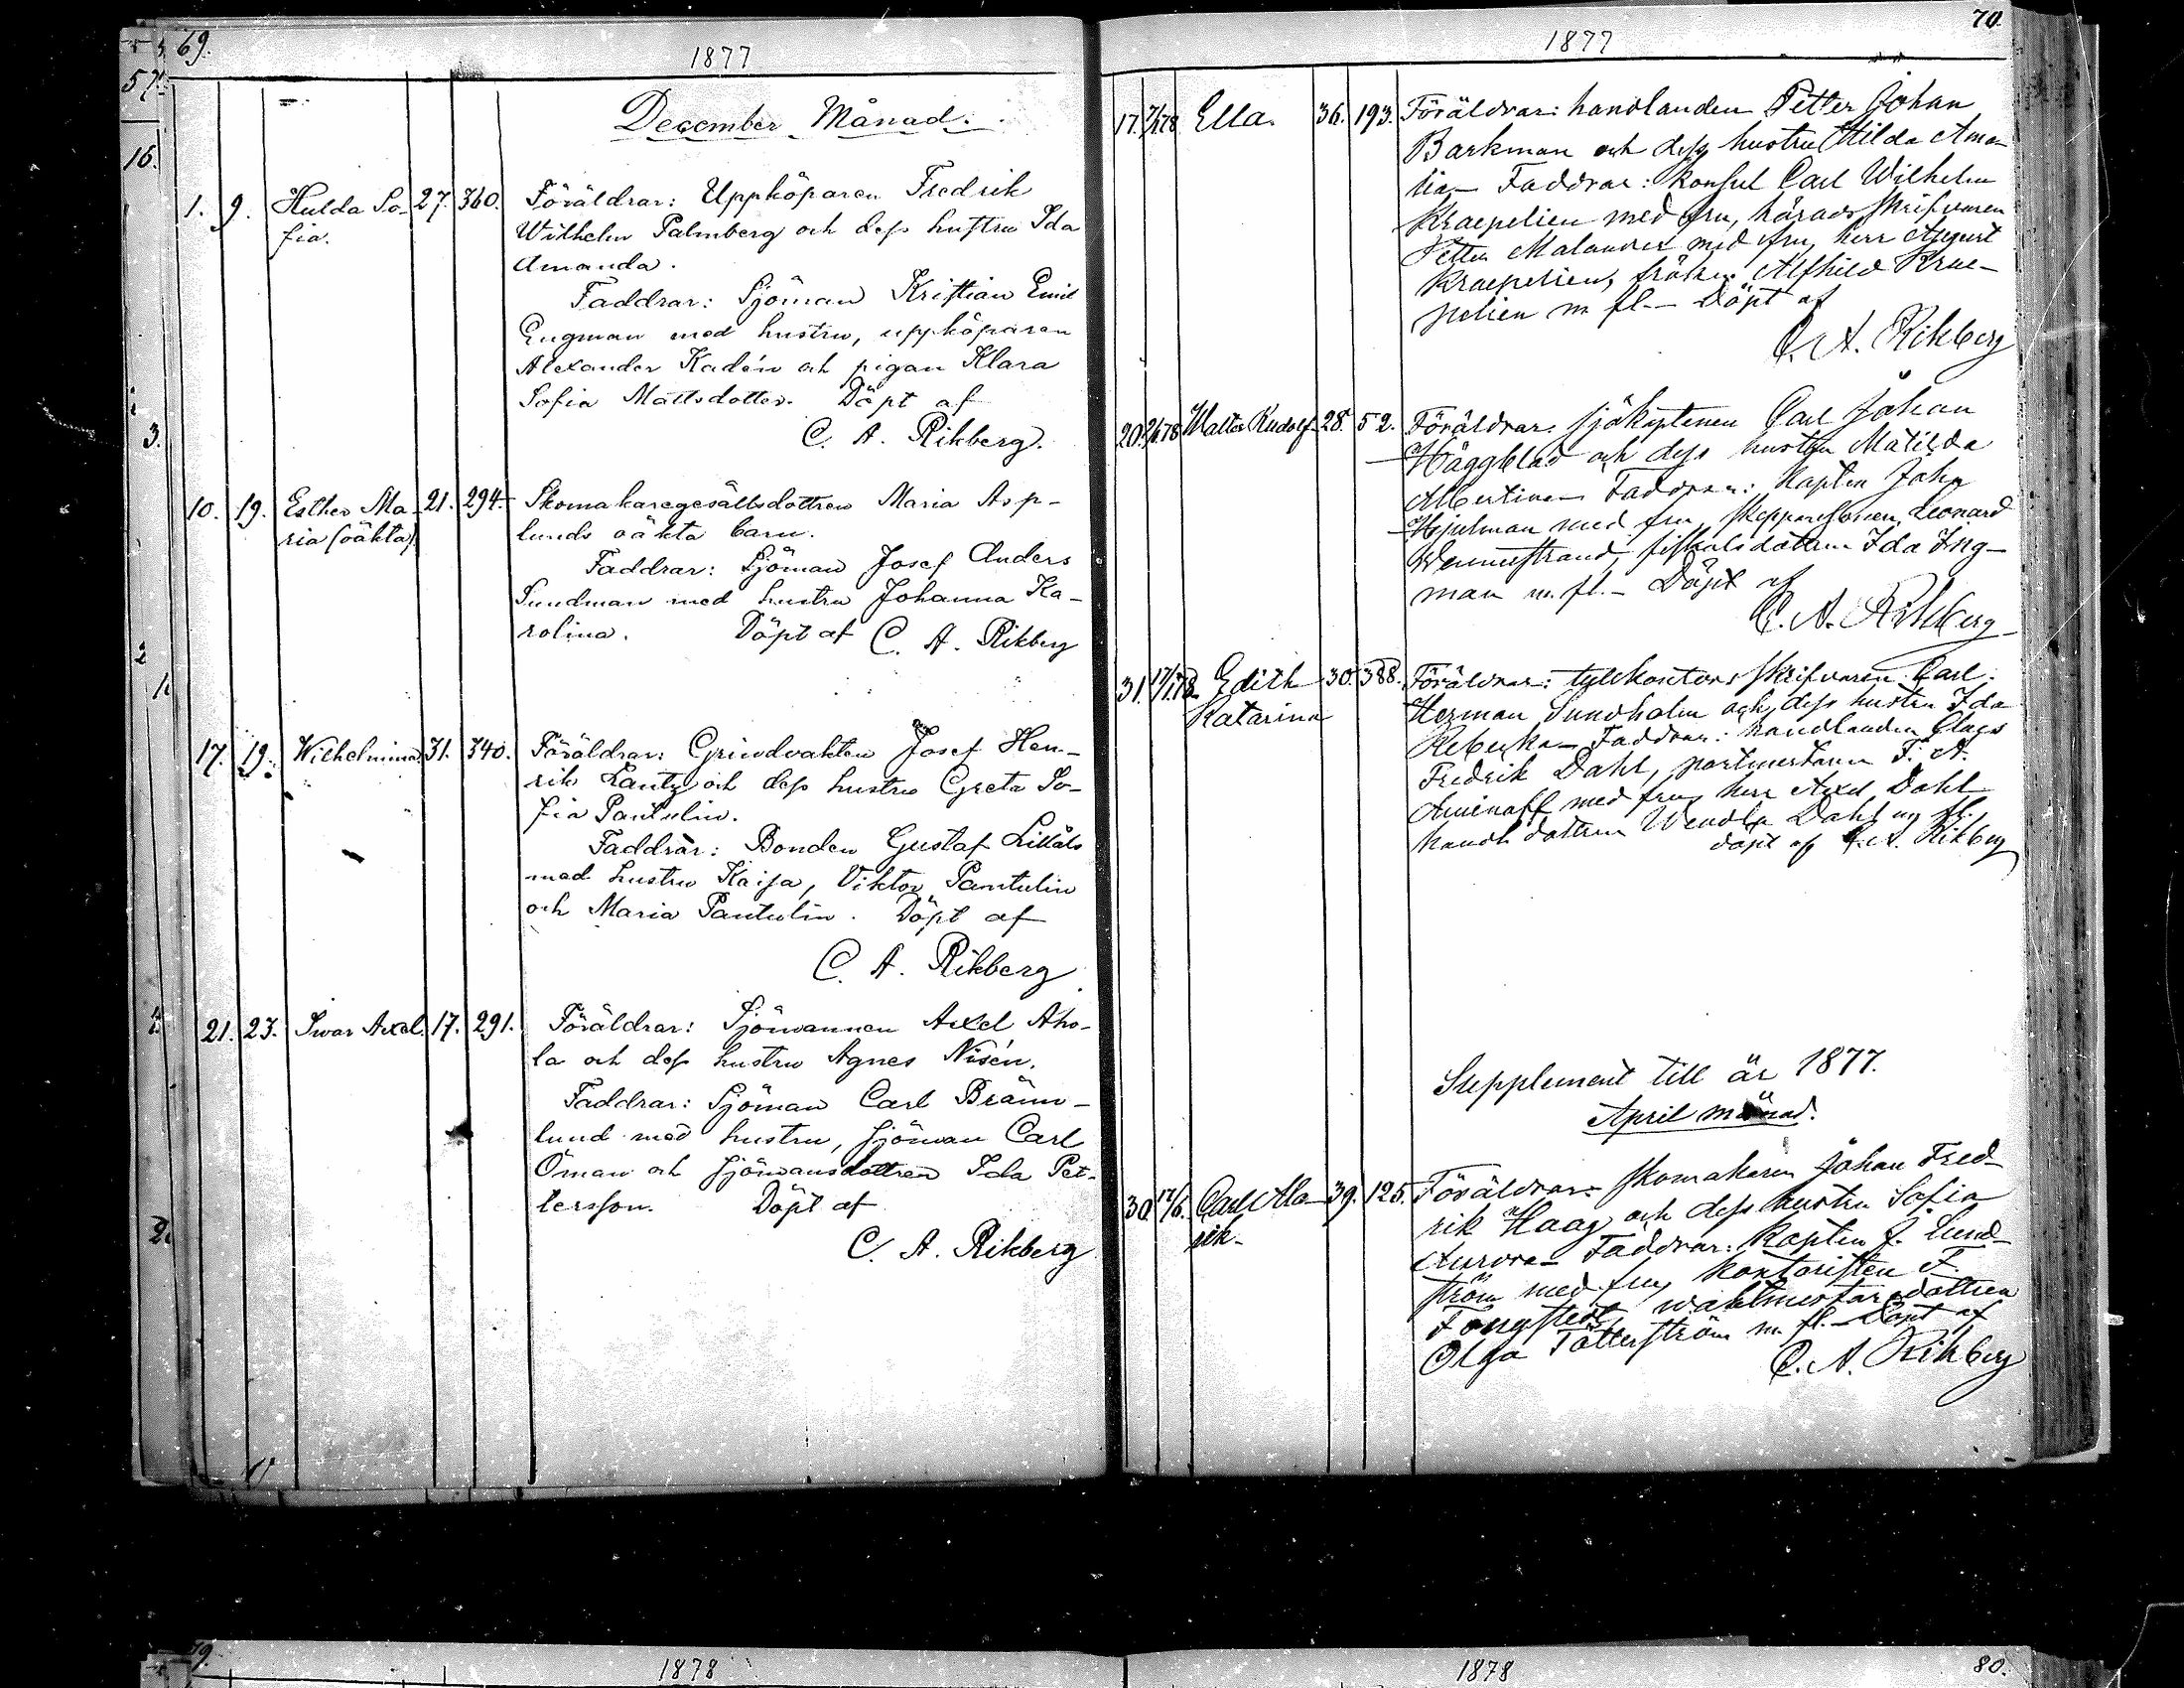 69.
1877
December Månad.
1. 9. Hulda So- 27. 360. Föräldrar: Uppköparen Fredrik
fia. Wilhelm Palmberg och dess hustru Ida
Amanda.
Faddrar: Sjöman Kristian Emil
Engman med hustru, uppköparen
Alexander Kadén och pigan Klara
Sofia Mattsdotter. Döpt af
C. A. Rikberg.
10. 19. Esther Ma- 21. 294. Skomakaregesällsdottren Maria Asp-
ria (oäkta) lunds oäkta barn.
Faddrar: Sjöman Josef Anders
Sundman med hustru Johanna Ka-
rolina. Döpt af C. A. Rikberg
17. 19. Wilhelmina 31. 340. Föräldrar: Grindvakten Josef Hen-
rik Lantz och dess hustru Greta So-
fia Pantulin.
Faddrar: Bonden Gustaf Lillåls
med hustru Kaisa, Viktor Pantulin
och Maria Pantulin. Döpt af
C. A. Rikberg
21. 23. Iwar Axel. 17. 291. Föräldrar: Sjömannen Axel Aho-
la och dess hustru Agnes Nisén.
Faddrar: Sjöman Carl Bränn-
lund med hustru, sjöman Carl
Öman och sjömansdottren Ida Pet-
tersson. Döpt af
C. A. Rikberg
70.
1877
17. 7/1.78 Ella. 36. 193. Föräldrar: handlanden Petter Johan
Barkman och dess hustru Hilda Ama-
lia- Faddrar: Konsul Carl Wilhelm
Kraepelien med fru, häradsskrifvaren
Petter Malander med fru, herr August
Kraepelien, fröken Alfhild Krae-
pelien m fl.- Döpt af
C. A. Rikberg
20. Walter Rudolf 28. 52. Föräldrar: sjökaptenen Carl Johan
Häggblad och dess hustru Matilda
Albertina- Faddrar: Kapten John
Hjulman med fru, skepparesonen Leonard
Wennestrand, fiskalsdottern Ida Ing-
man m. fl.- Döpt af
C. A. Rikberg
31. 17/1.78. Edith 30. 388. Föräldrar: tullkontorsskrifvaren Carl
Katarina Herman Sundholm och dess hustru Ida
Rebecka- Faddrar: handlanden Claes
Fredrik Dahl, portmästaren F. A.
Aminoff med fru, herr Axel Dahl
handl dottren Wendla Dahl m fl.
döpt af C. A. Rikberg
Supplement till år 1877.
April månad.
30. Carl Ala- 39. 125. Föräldrar: skomakaren Johan Fred-
rik- rik Haag och dess hustru Sofia
Aurora- Faddrar: Kapten J. Lund-
ström med fru, Kontoristen F.
Tongstedt, waktmästaredottren
Olga Tätterström m. fl.- Döpt af
C. A. Rikberg
79.
1878
1878
80.